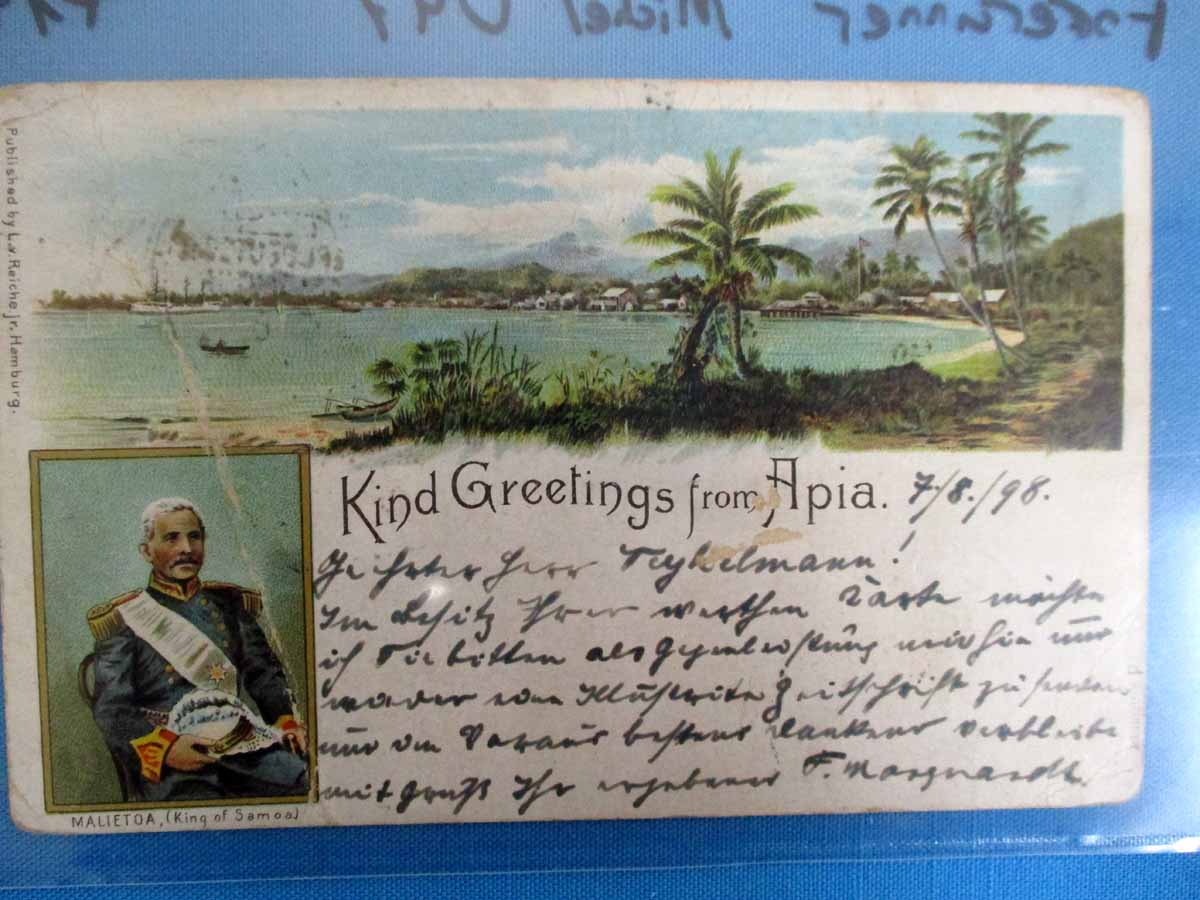 Michel
Published by L.v. Reiche jr. Hamburg.
Kind Greetings from Apia. 7./8./98.
Geehrter Herr
Im Besitz Ihrer werthen Karte möchte
ich Sie bitten als Gegenleistung mir
Illustrirte Zeitschrift zu senden
im Voraus bestens dankend verbleibe
mit Gruß Ihr ergebener F. Marquardt.
MALIETOA, (King of Samoa)